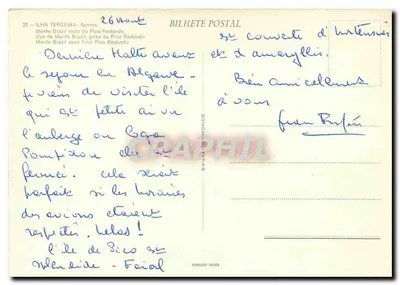 22 - ILHA TERCEIRA - Açores
Monte Brazil visto do Pico Redondo
Vue de Monte Brazil, prise du Pico Redondo
Monte Brazil seen from Pico Redondo
26 Aout
BILHETE POSTAL
Dernière Halte avant
le séjour en
je viens de visiter l'île
qui est petite ai vu
l'auberge où loge
Pompidou elle est
fermée. cela serait
parfait si les horaires
des avions étaient
respectés. hélas!
l'île de Pico est
splendide - Faial
est couverte d'hortensias
et d'amaryllis.
Bien amicalement
à vous
Jean
CPARAMA
CARPHIL